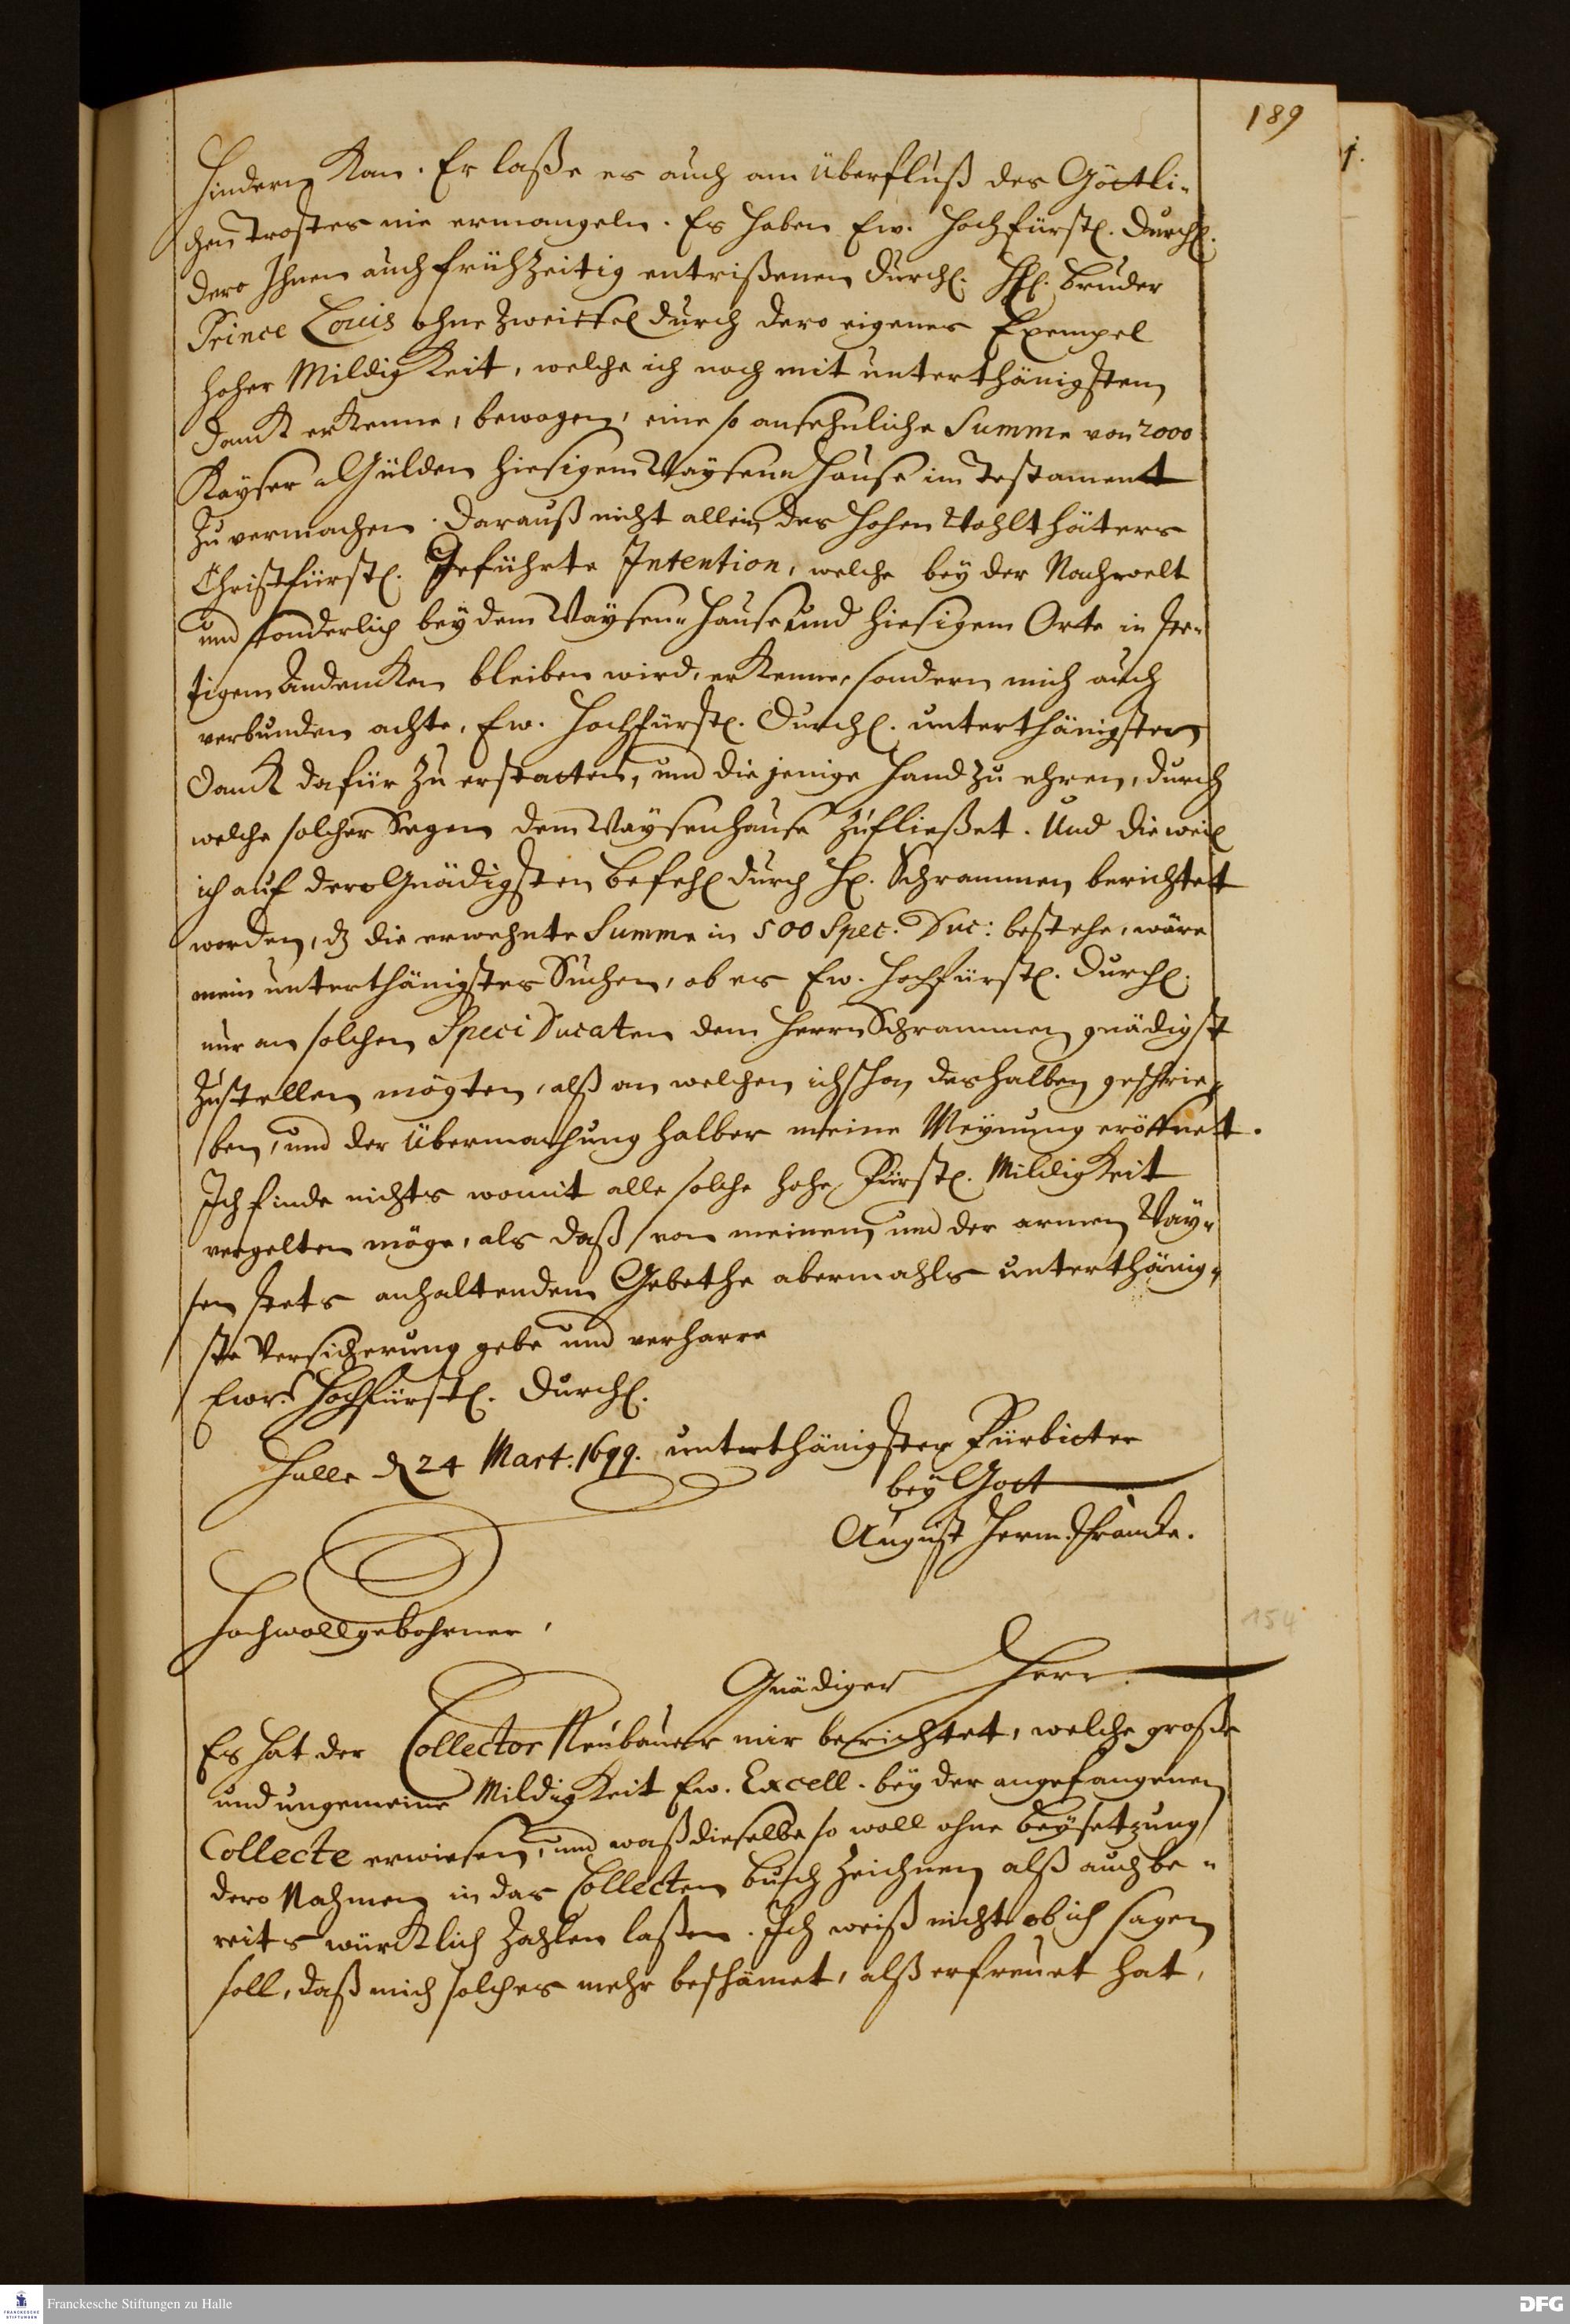 189
hindern kan. Er laße es auch am Überfluß des Göttli-
chen trostes nie ermangeln. Es haben Ew. Hochfürstl. Durchl.
dero Ihnen auch frühzeitig entrißenen Durchl. Hl. Bruder
Prince Louis ohne Zweiffel durch dero eigenes Exempel
hoher Mildigkeit, welche ich noch mit unterthänigstem
Danck erkenne, bewogen, eine so ansehnliche Summe von 2000
Kayser-Gülden hiesigem Waysen-Hause im Testament
zu vermachen. Darauß nicht allein des hohen Wohlthäters
Christfürstl. geführte Intention, welche bey der Nachwelt
und sonderlich bey dem Waysen-Hause und hiesigem Orte in ste-
tigem Andencken bleiben wird, erkenne, sondern mich auch
verbunden achte, Ew. Hochfürstl. Durchl. unterthänigsten
Danck dafür zu erstatten, und die jenige Hand zu ehren, durch
welche solcher Segen dem Waysenhause zufließet. Und dieweil
ich auf dero Gnädigsten Befehl durch H. Schrammen berichtet
worden, dz die erwehnte Summe in 500 Spec. Duc: bestehe, wäre
mein unterthänigstes Suchen, ob es Ew. Hochfürstl. Durchl.
nur an solchen Speci Ducaten dem Herrn Schrammen gnädigst
zustellen mögten, alß an welchen ich schon deshalben geschrie-
ben, und der Übermachung halber meine Meynung eröffnet.
Ich finde nichts womit alle solche hohe Fürstl. Mildigkeit
vergelten möge, als daß von meinem und der armen Way-
sen stets anhaltendem Gebethe abermahls unterthänig-
ste Versicherung gebe und verharre
Ewr. Hochfürstl. Durchl.
Halle d 24 Mart. 1699. unterthänigster Fürbitter
bey Gott
August Herm. Francke.
154
Hochwollgebohrner,
Gnädiger Herr.
Es hat der Collector Neubauer mir berichtet, welche große
und ungemeine Mildigkeit Ew. Excell. bey der angefangenen
Collecte erwiesen, und waß dieselbe so woll ohne beysetzung
dero Nahmen in das Collecten buch zeichnen alß auch be-
reits würcklich zahlen laßen. Ich weiß nicht ob ich sagen
soll, daß mich solches mehr beschämet, alß erfreuet hat,
Franckesche Stiftungen zu Halle
DFG